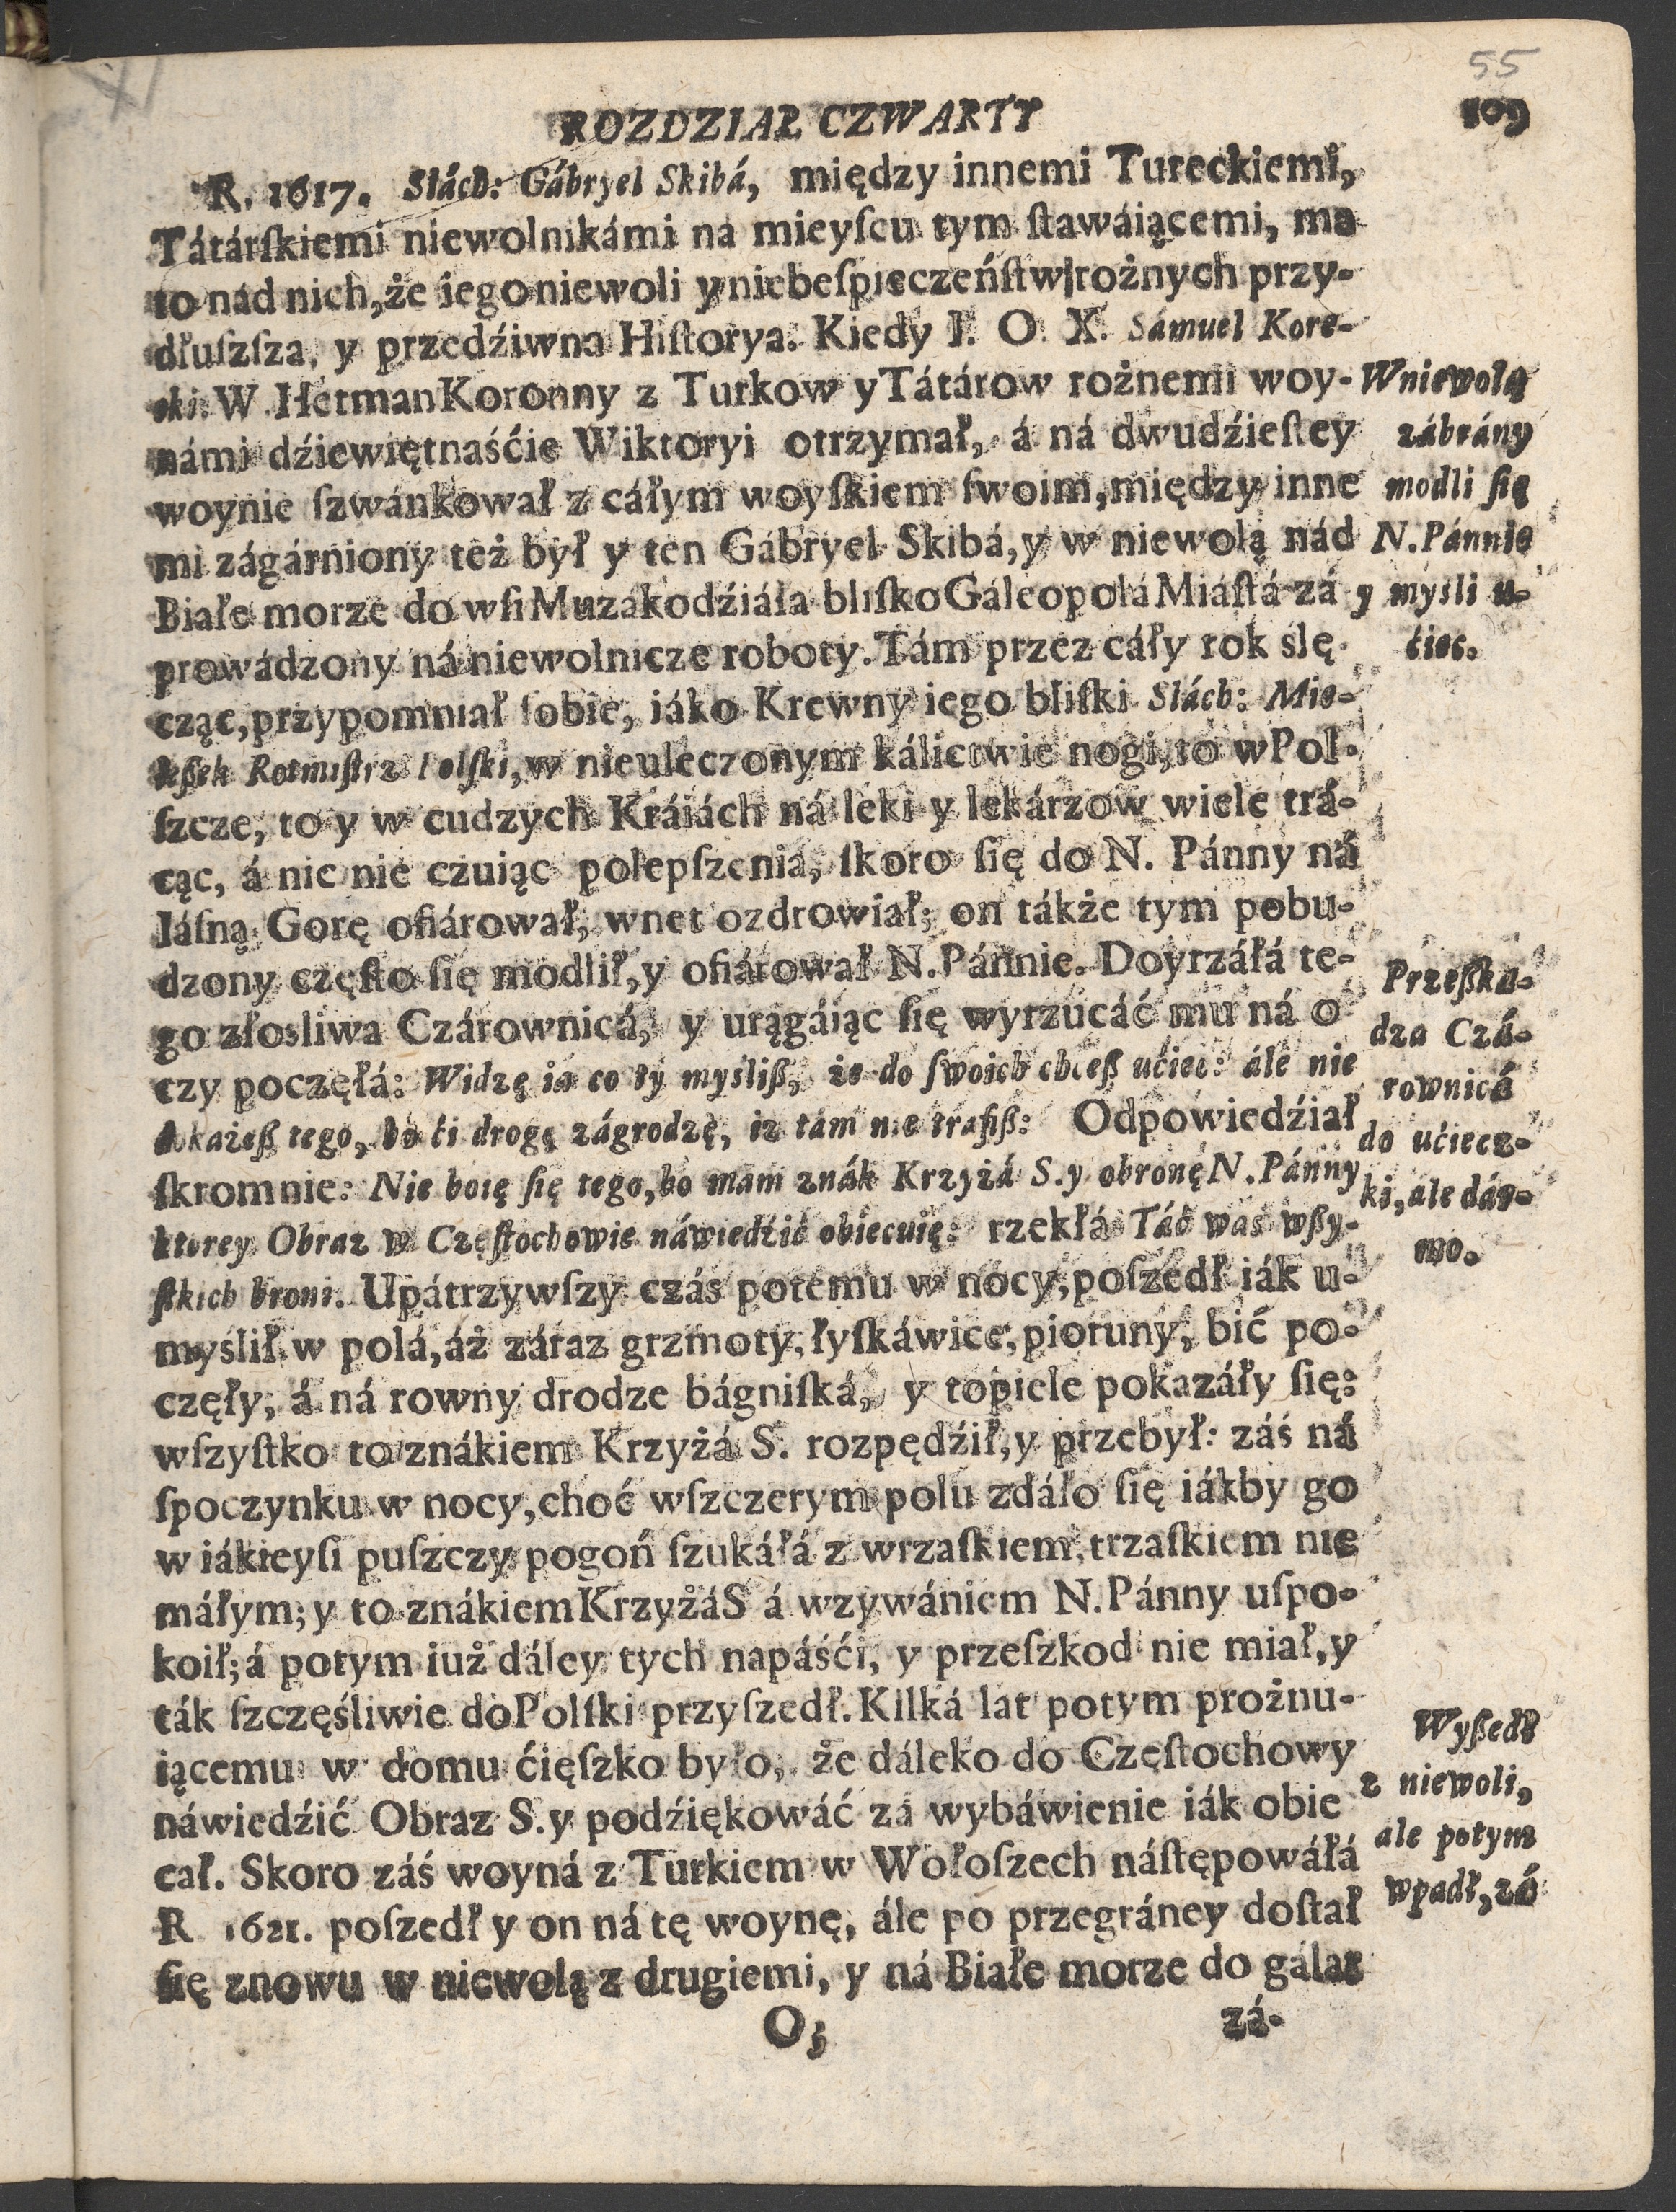 55
ROZDZIAŁ CZWARTY
109
R. 1617. Slách: Gábryel Skibá, między innemi Tureckiemi,
Tátárſkiemi niewolnikámi na mieyſcu tym ſtawáiącemi, ma
to nád nich, że iego niewoli y niebeſpieczeńſtw rożnych przy-
dłuſzſza, y przedźiwna Hiſtorya. Kiedy I. O. X. Sámuel Kore-
cki. W. Hetman Koronny z Turkow y Tátárow rożnemi woy-
námi dźiewiętnaśćie Wiktoryi otrzymał, á ná dwudźieſtey
woynie ſzwánkował z cáłym woyſkiem ſwoim, między inne
mi zágárniony też był y ten Gábryel Skibá, y w niewolą nád
Białe morze do wſi Muzákodźiáła bliſko Gáleopolá Miáſtá zá
prowádzony ná niewolnicze roboty. Tám przez cáły rok ślę
cząc, przypomniał ſobie, iáko Krewny iego bliſki Slách: Mie-
leßek Rotmiſtrz Polſki, w nieuleczonym kálictwie nogi, to w Pol-
ſzcze, to y w cudzych Kráiách ná leki y lekárzow wiele trá-
cąc, á nic nie czuiąc polepſzenia, ſkoro ſię do N. Pánny ná
Iáſną Gorę ofiárował, wnet ozdrowiał; on tákże tym pobu-
dzony częſto ſię modlił, y ofiárował N. Pánnie. Doyrzáłá te-
go złosliwa Czárownicá, y urągáiąc ſię wyrzucáć mu ná o
czy poczęłá: Widzę ia co ty myśliß, że do ſwoich chceß ućiec: ále nie
dokażeß tego, bo ći drogę zágrodzę, iz tám nie trafiß: Odpowiedźiał
ſkromnie: Nie boię ſię tego, bo mam znák Krzyżá S. y obronę N. Pánny
ktorey Obraz w Częſtochowie náwiedźić obiecuię: rzekłá Táć was wßy-
ſtkich broni. Upátrzywſzy czás potemu w nocy, poſzedł iák u-
myślił w polá, áż záraz grzmoty, łyſkáwice, pioruny, bić po-
częły, á ná rowny drodze bágniſká, y topiele pokazáły ſię:
wſzyſtko to znákiem Krzyżá S. rozpędźił, y przebył: záś ná
ſpoczynku w nocy, choć wſzczerym polu zdáło ſię iákby go
w iákieyſi puſzczy pogoń ſzukáłá z wrzaſkiem, trzaſkiem nie
máłym; y to znákiem Krzyżá S á wzywániem N. Pánny uſpo-
koił; á potym iuż dáley tych napáśći, y przeſzkod nie miał, y
ták ſzczęśliwie do Polſki przyſzedł. Kilká lat potym prożnu-
iącemu w domu ćięſzko było, że dáleko do Częſtochowy
náwiedźić Obraz S. y podźiękowáć zá wybáwienie iák obie
cał. Skoro záś woyná z Turkiem w Wołoſzech náſtępowáłá
R 1621. poſzedł y on ná tę woynę, ále po przegráney doſtał
ſię znowu w niewolą z drugiemi, y ná Białe morze do galar
O;
zá-
W niewolą
zábrány
modli ſię
N. Pánnie
y myśli u-
ćiec.
Przeßka-
dza Czá-
rownicá
do ućiecz-
ki, ale dár-
mo.
Wyßedł
z niewoli,
ale potym
wpadł, zá